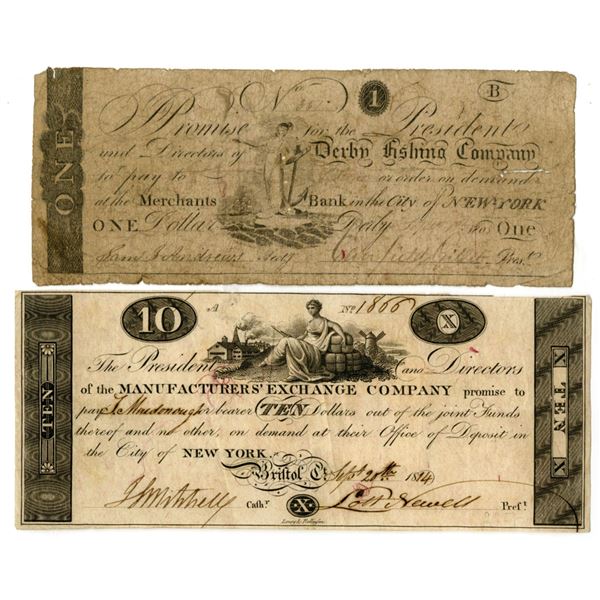 No
1
B
ONE
I Promise for the President
and Directors of Derby Fishing Company
to pay to or order on demand
at the Merchants Bank in the City of NEW-YORK
ONE Dollar Derby One
Secy Prest.
10
A
No. 1866
X
The President and Directors
of the MANUFACTURERS' EXCHANGE COMPANY promise to
pay or bearer TEN Dollars out of the joint Funds
thereof and no other, on demand at their Office of Deposit in
the City of NEW YORK.
Bristol Ct. Sept 20th 1814
TEN
X TEN X
J S Mitchell Cashr. X Lott Newell Preft.